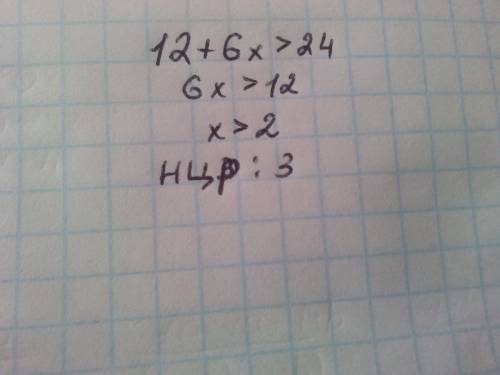 12+6x>24
6x>12
x>2
нцр: 3